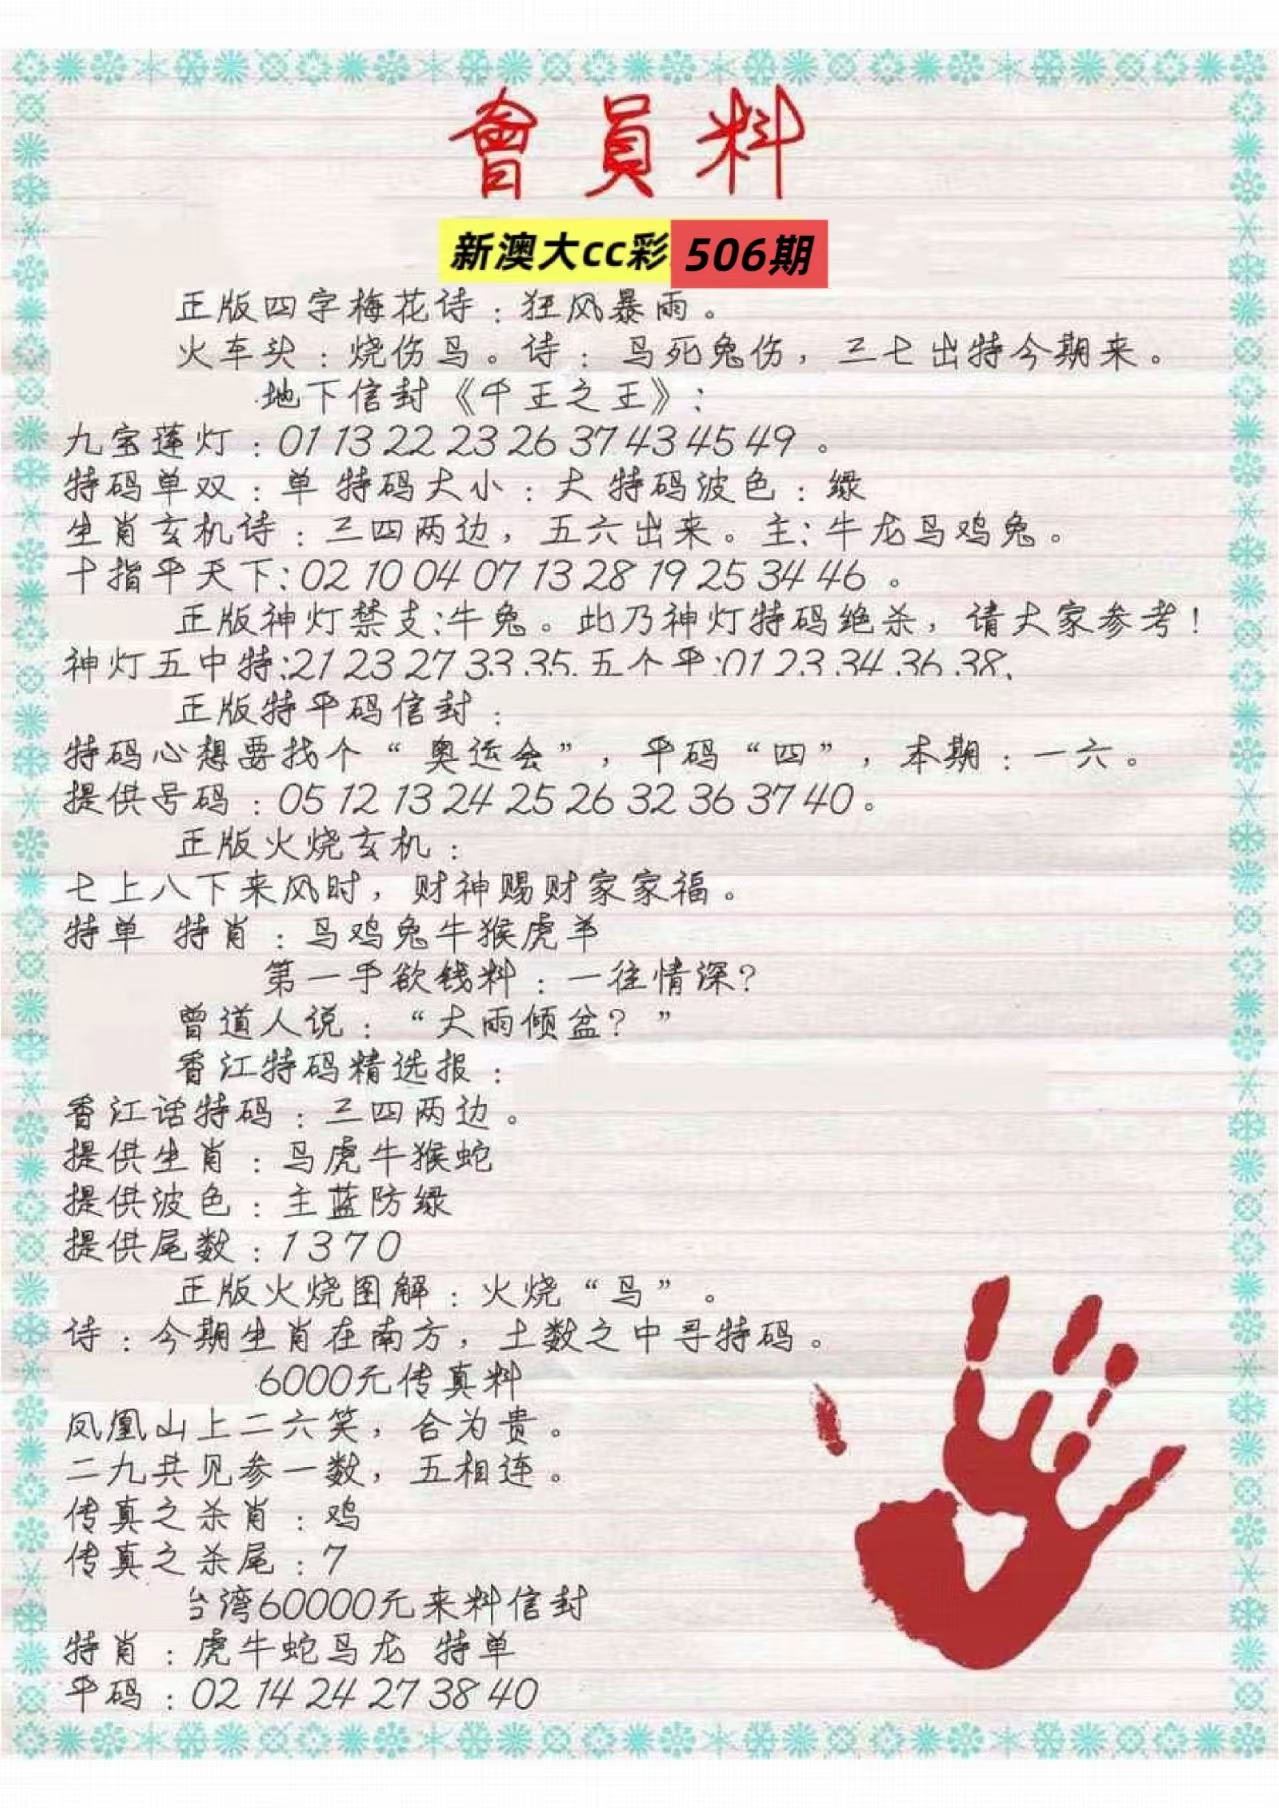 會員料
新澳大cc彩 506期
正版四字梅花诗：狂风暴雨。
火车头：烧伤马。诗：马死兔伤，三七出特今期来。
地下信封《千王之王》：
九宝莲灯：01 13 22 23 26 37 43 45 49 。
特码单双：单 特码大小：大 特码波色：绿
生肖玄机诗：三四两边，五六出来。主：牛龙马鸡兔。
十指平天下：02 10 04 07 13 28 19 25 34 46 。
正版神灯禁支：牛兔。此乃神灯特码绝杀，请大家参考！
神灯五中特：21 23 27 33 35. 五个平：01 23 34 36 38.
正版特平码信封：
特码心想要找个“奥运会”，平码“四”，本期：一六。
提供号码：05 12 13 24 25 26 32 36 37 40。
正版火烧玄机：
七上八下来风时，财神赐财家家福。
特单 特肖：马鸡兔牛猴虎羊
第一手欲钱料：一往情深？
曾道人说：“大雨倾盆？”
香江特码精选报：
香江话特码：三四两边。
提供生肖：马虎牛猴蛇
提供波色：主蓝防绿
提供尾数：1 3 7 0
正版火烧图解：火烧“马”。
诗：今期生肖在南方，土数之中寻特码。
6000元传真料
凤凰山上二六笑，合为贵。
二九共见参一数，五相连。
传真之杀肖：鸡
传真之杀尾：7
台湾60000元来料信封
特肖：虎牛蛇马龙 特单
平码：02 14 24 27 38 40